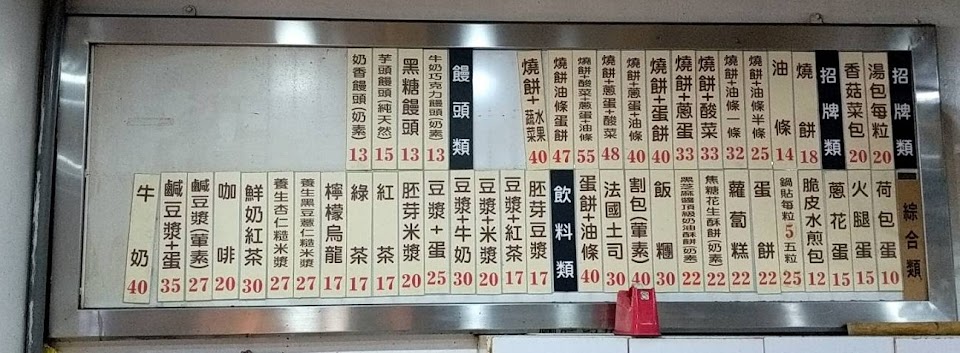 招牌類
湯包每粒 20
香菇菜包 20
招牌類
燒餅 18
油條 14
燒餅+油條半條 25
燒餅+油條一條 32
燒餅+酸菜 33
燒餅+蔥蛋 33
燒餅+蛋餅 40
燒餅+蔥蛋+油條 40
燒餅+蔥蛋+酸菜 48
燒餅+酸菜+蔥蛋+油條 55
燒餅+油條蛋餅 47
燒餅+水果蔬菜 40
饅頭類
牛奶巧克力饅頭(奶素) 13
黑糖饅頭 13
芋頭饅頭(純天然) 15
奶香饅頭(奶素) 13
綜合類
荷包蛋 10
火腿蛋 15
蔥花蛋 15
脆皮水煎包 12
鍋貼每粒5五粒 25
蛋餅 22
蘿蔔糕 22
焦糖花生酥餅(奶素) 22
黑芝麻醬頂級奶油酥餅(奶素) 22
飯糰 30
割包(葷素) 40
法國土司 30
蛋餅+油條 40
飲料類
胚芽豆漿 17
豆漿+紅茶 17
豆漿+米漿 20
豆漿+牛奶 30
豆漿+蛋 25
胚芽米漿 20
紅茶 17
綠茶 17
檸檬烏龍 17
養生黑豆薏仁糙米漿 27
養生杏仁糙米漿 27
鮮奶紅茶 30
咖啡 20
鹹豆漿(葷素) 27
鹹豆漿+蛋 35
牛奶 40